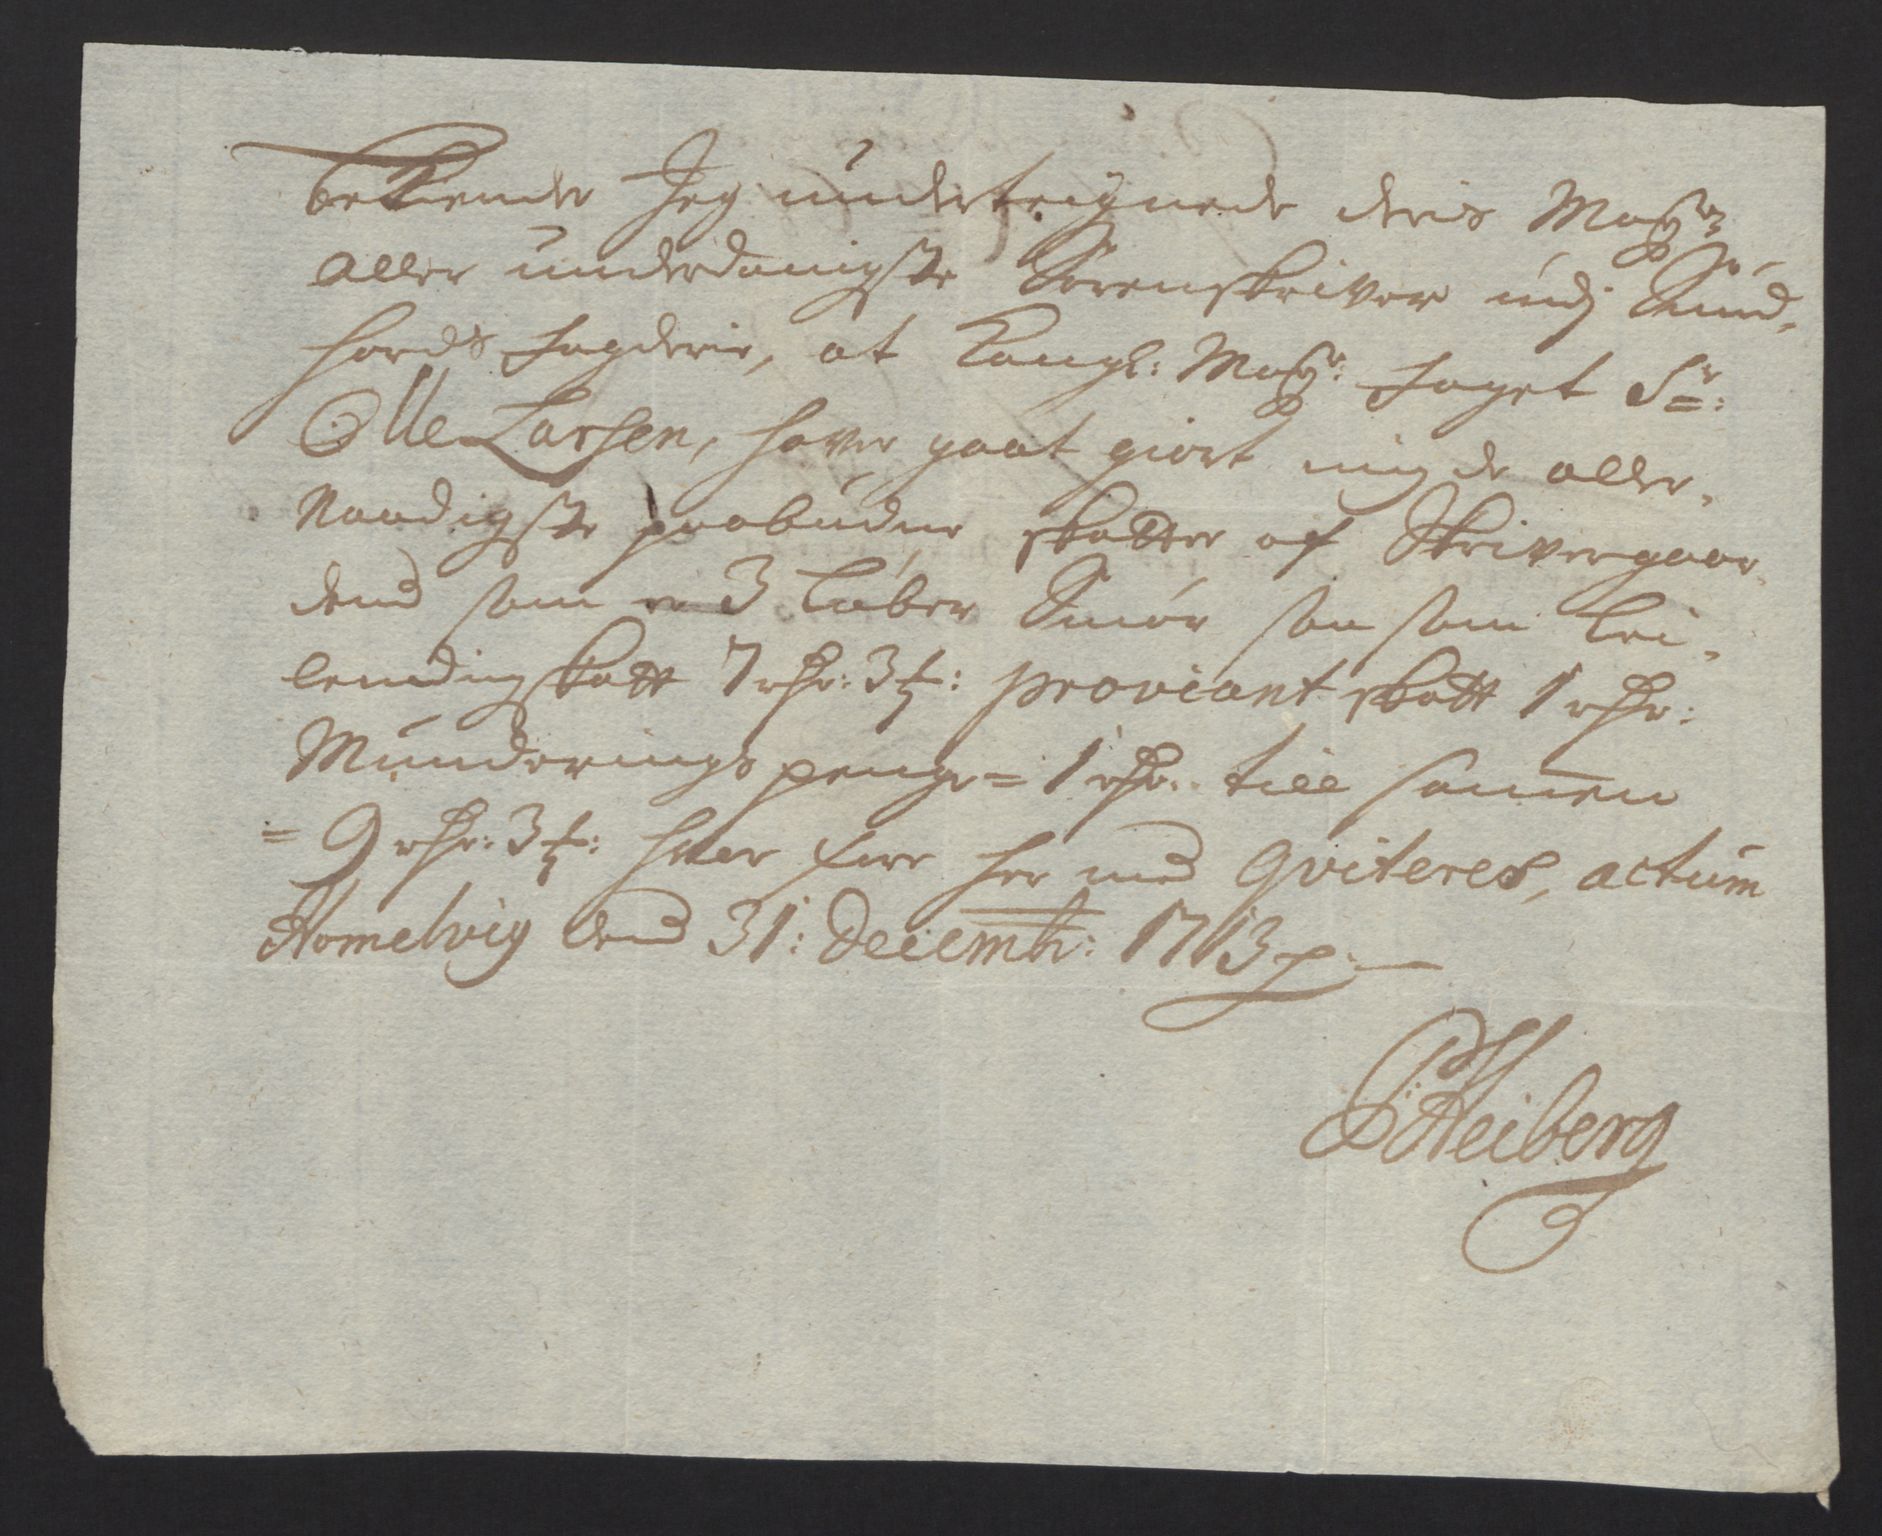 Bekiender Jeg underteignede deris Maÿ:ts
aller underdanigste Sorenskriver udj Sund-
fiords fogderie, at Kongl: Maÿts: foget Sr:
Olle Larsen, haver godt giort mig de aller-
Naadigste paabudne skatter af Skrivergaar-
dend som er 3 Løber Smør saa som Lei-
lendingskatt 7 rdr: 3 ß: proviant skatt 1 rdr:
Munderings penge = 1 rdr: till samen
= 9 rdr: 3 ß: hvor fore her med qviteres, actum
Homelvig dend 31: Decembr: 1713
Heiberg